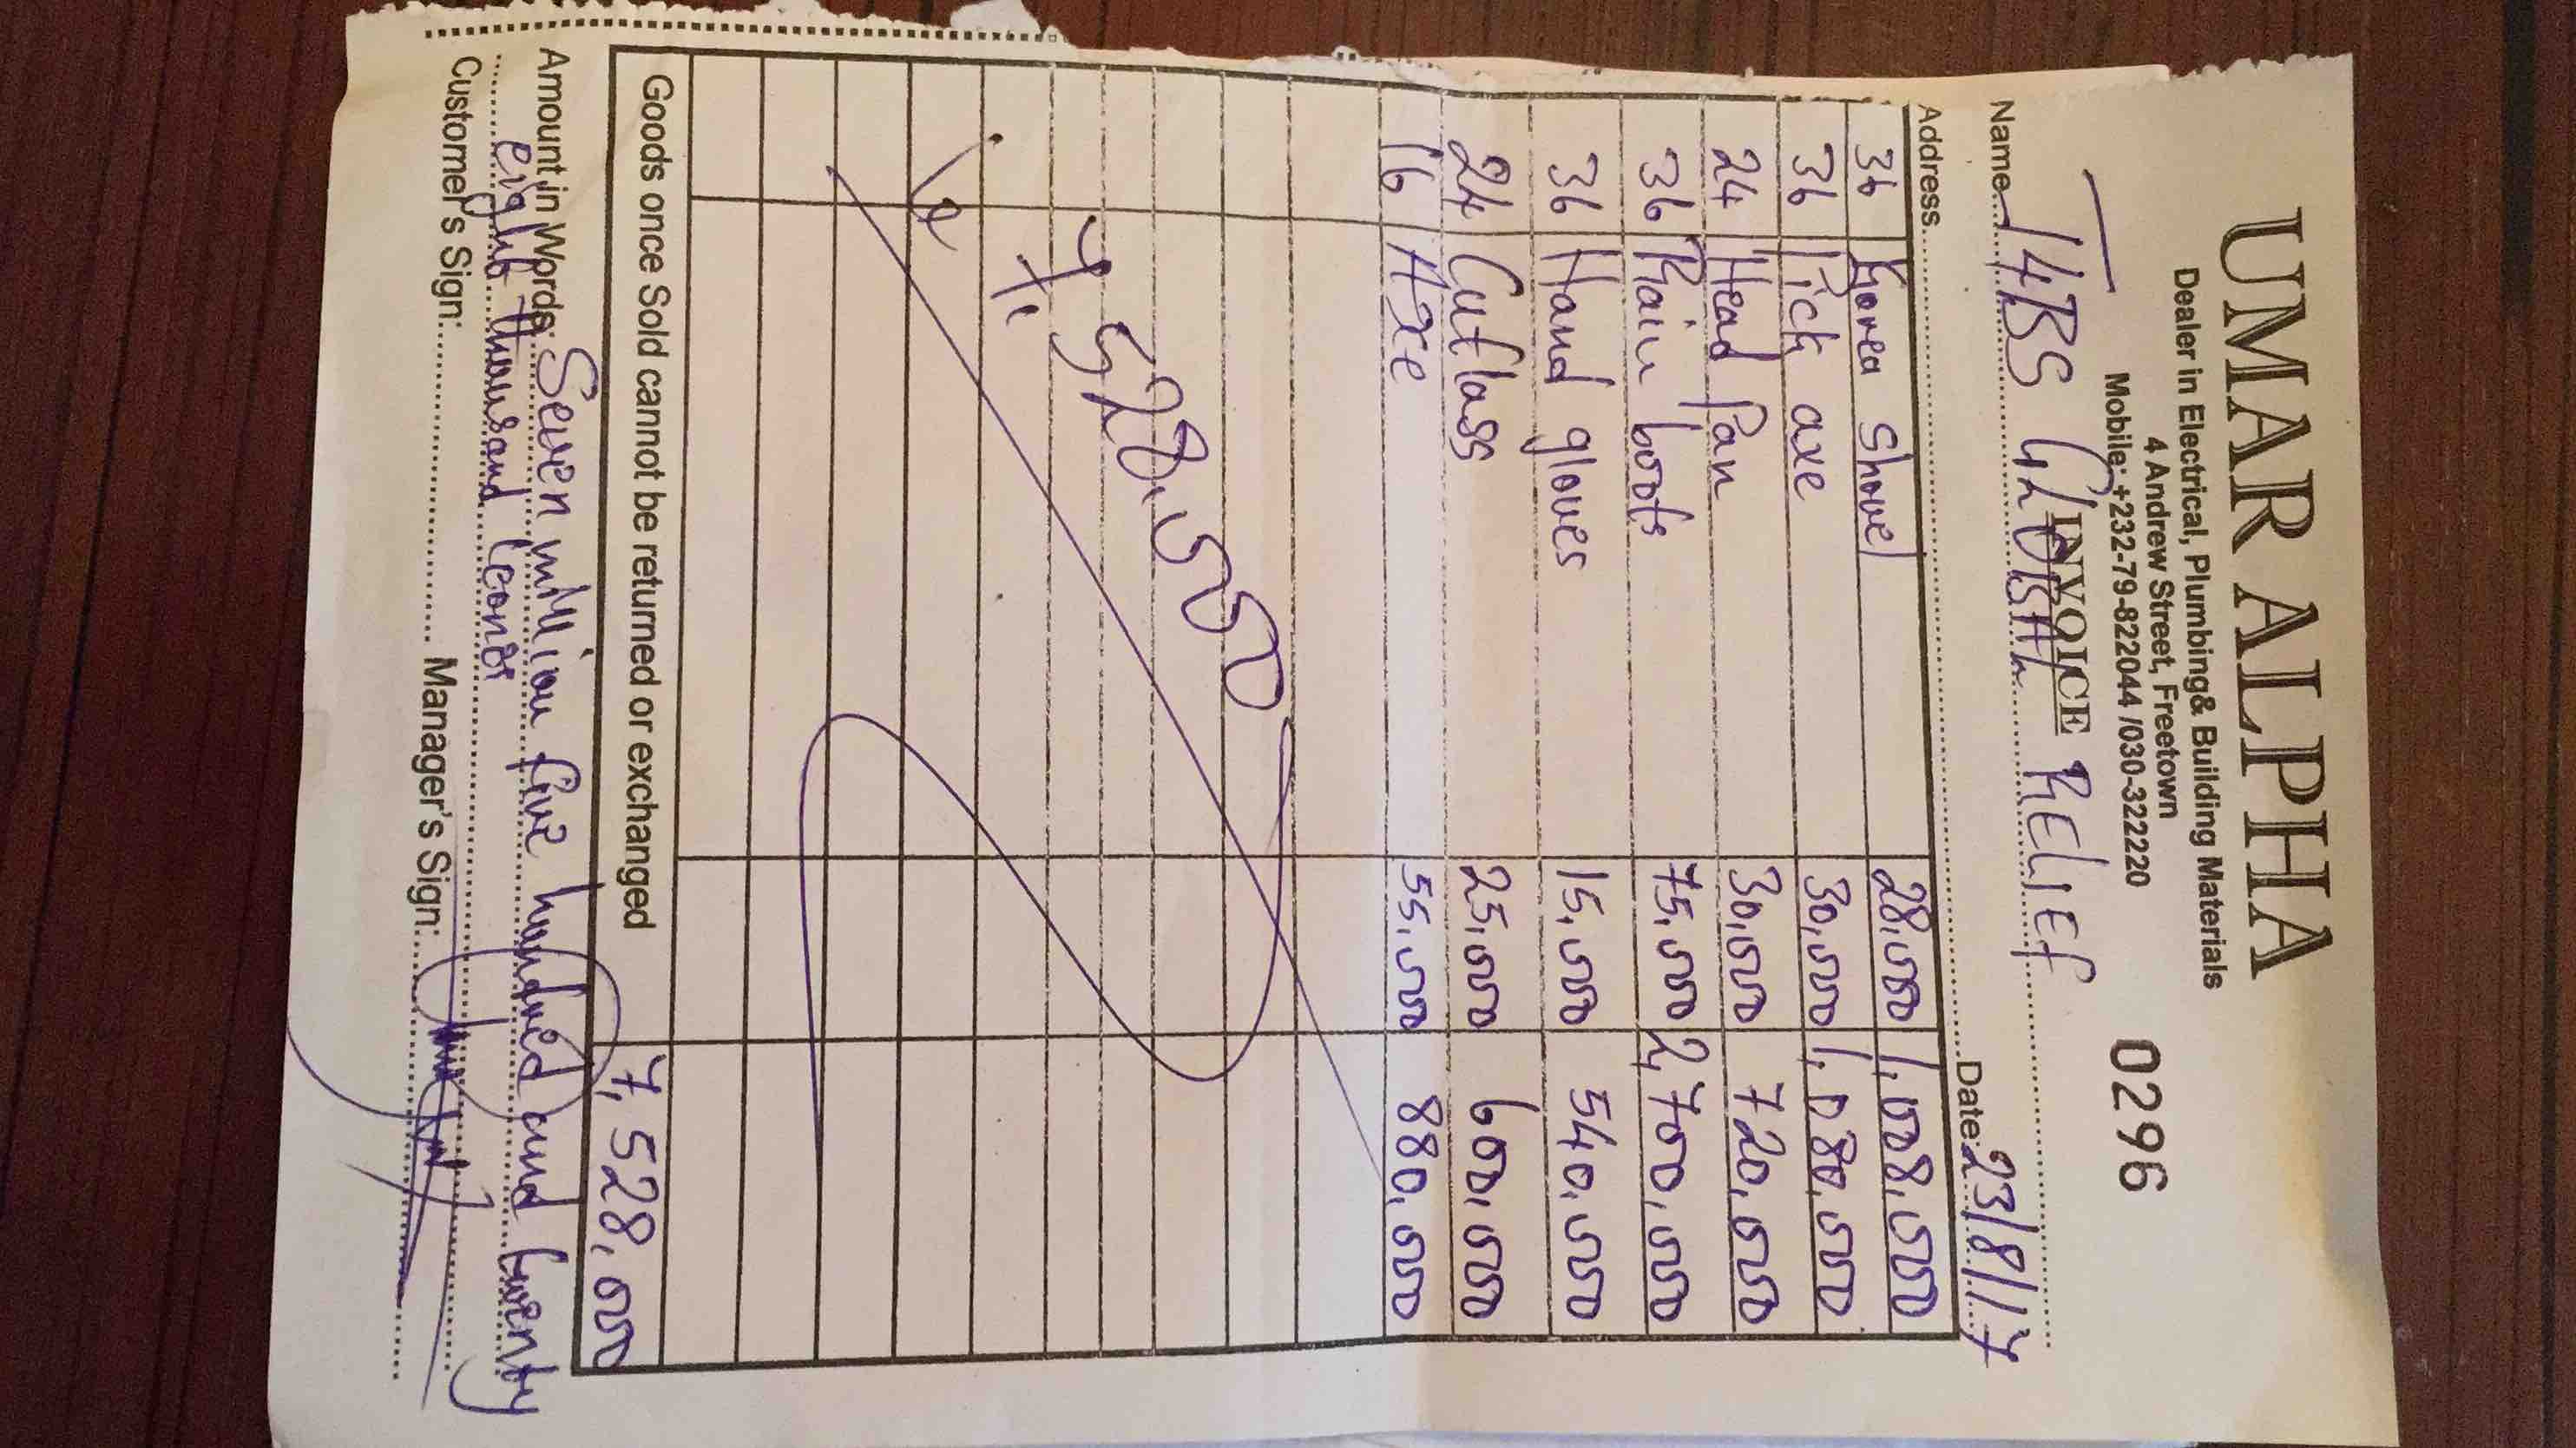 UMAR ALPHA
Dealer in Electrical, Plumbing& Building Materials
4 Andrew Street, Freetown
Mobile: +232-79-822044 /030-322220
INVOICE
0296
Name T4BS GLOBAL RELIEF
Address Date: 23/8/17
36 Korea Shovel 28,000 1,008,000
36 Pick axe 30,000 1,080,000
24 Head Pan 30,000 720,000
36 Rain boots 75,000 2,700,000
36 Hand gloves 15,000 540,000
24 Cutlass 25,000 600,000
16 Axe 55,000 880,000
7,528,000
Goods once Sold cannot be returned or exchanged 7,528,000
Amount in Words: Seven million five hundred and twenty
eight thousand Leones
Customer's Sign: Manager's Sign: